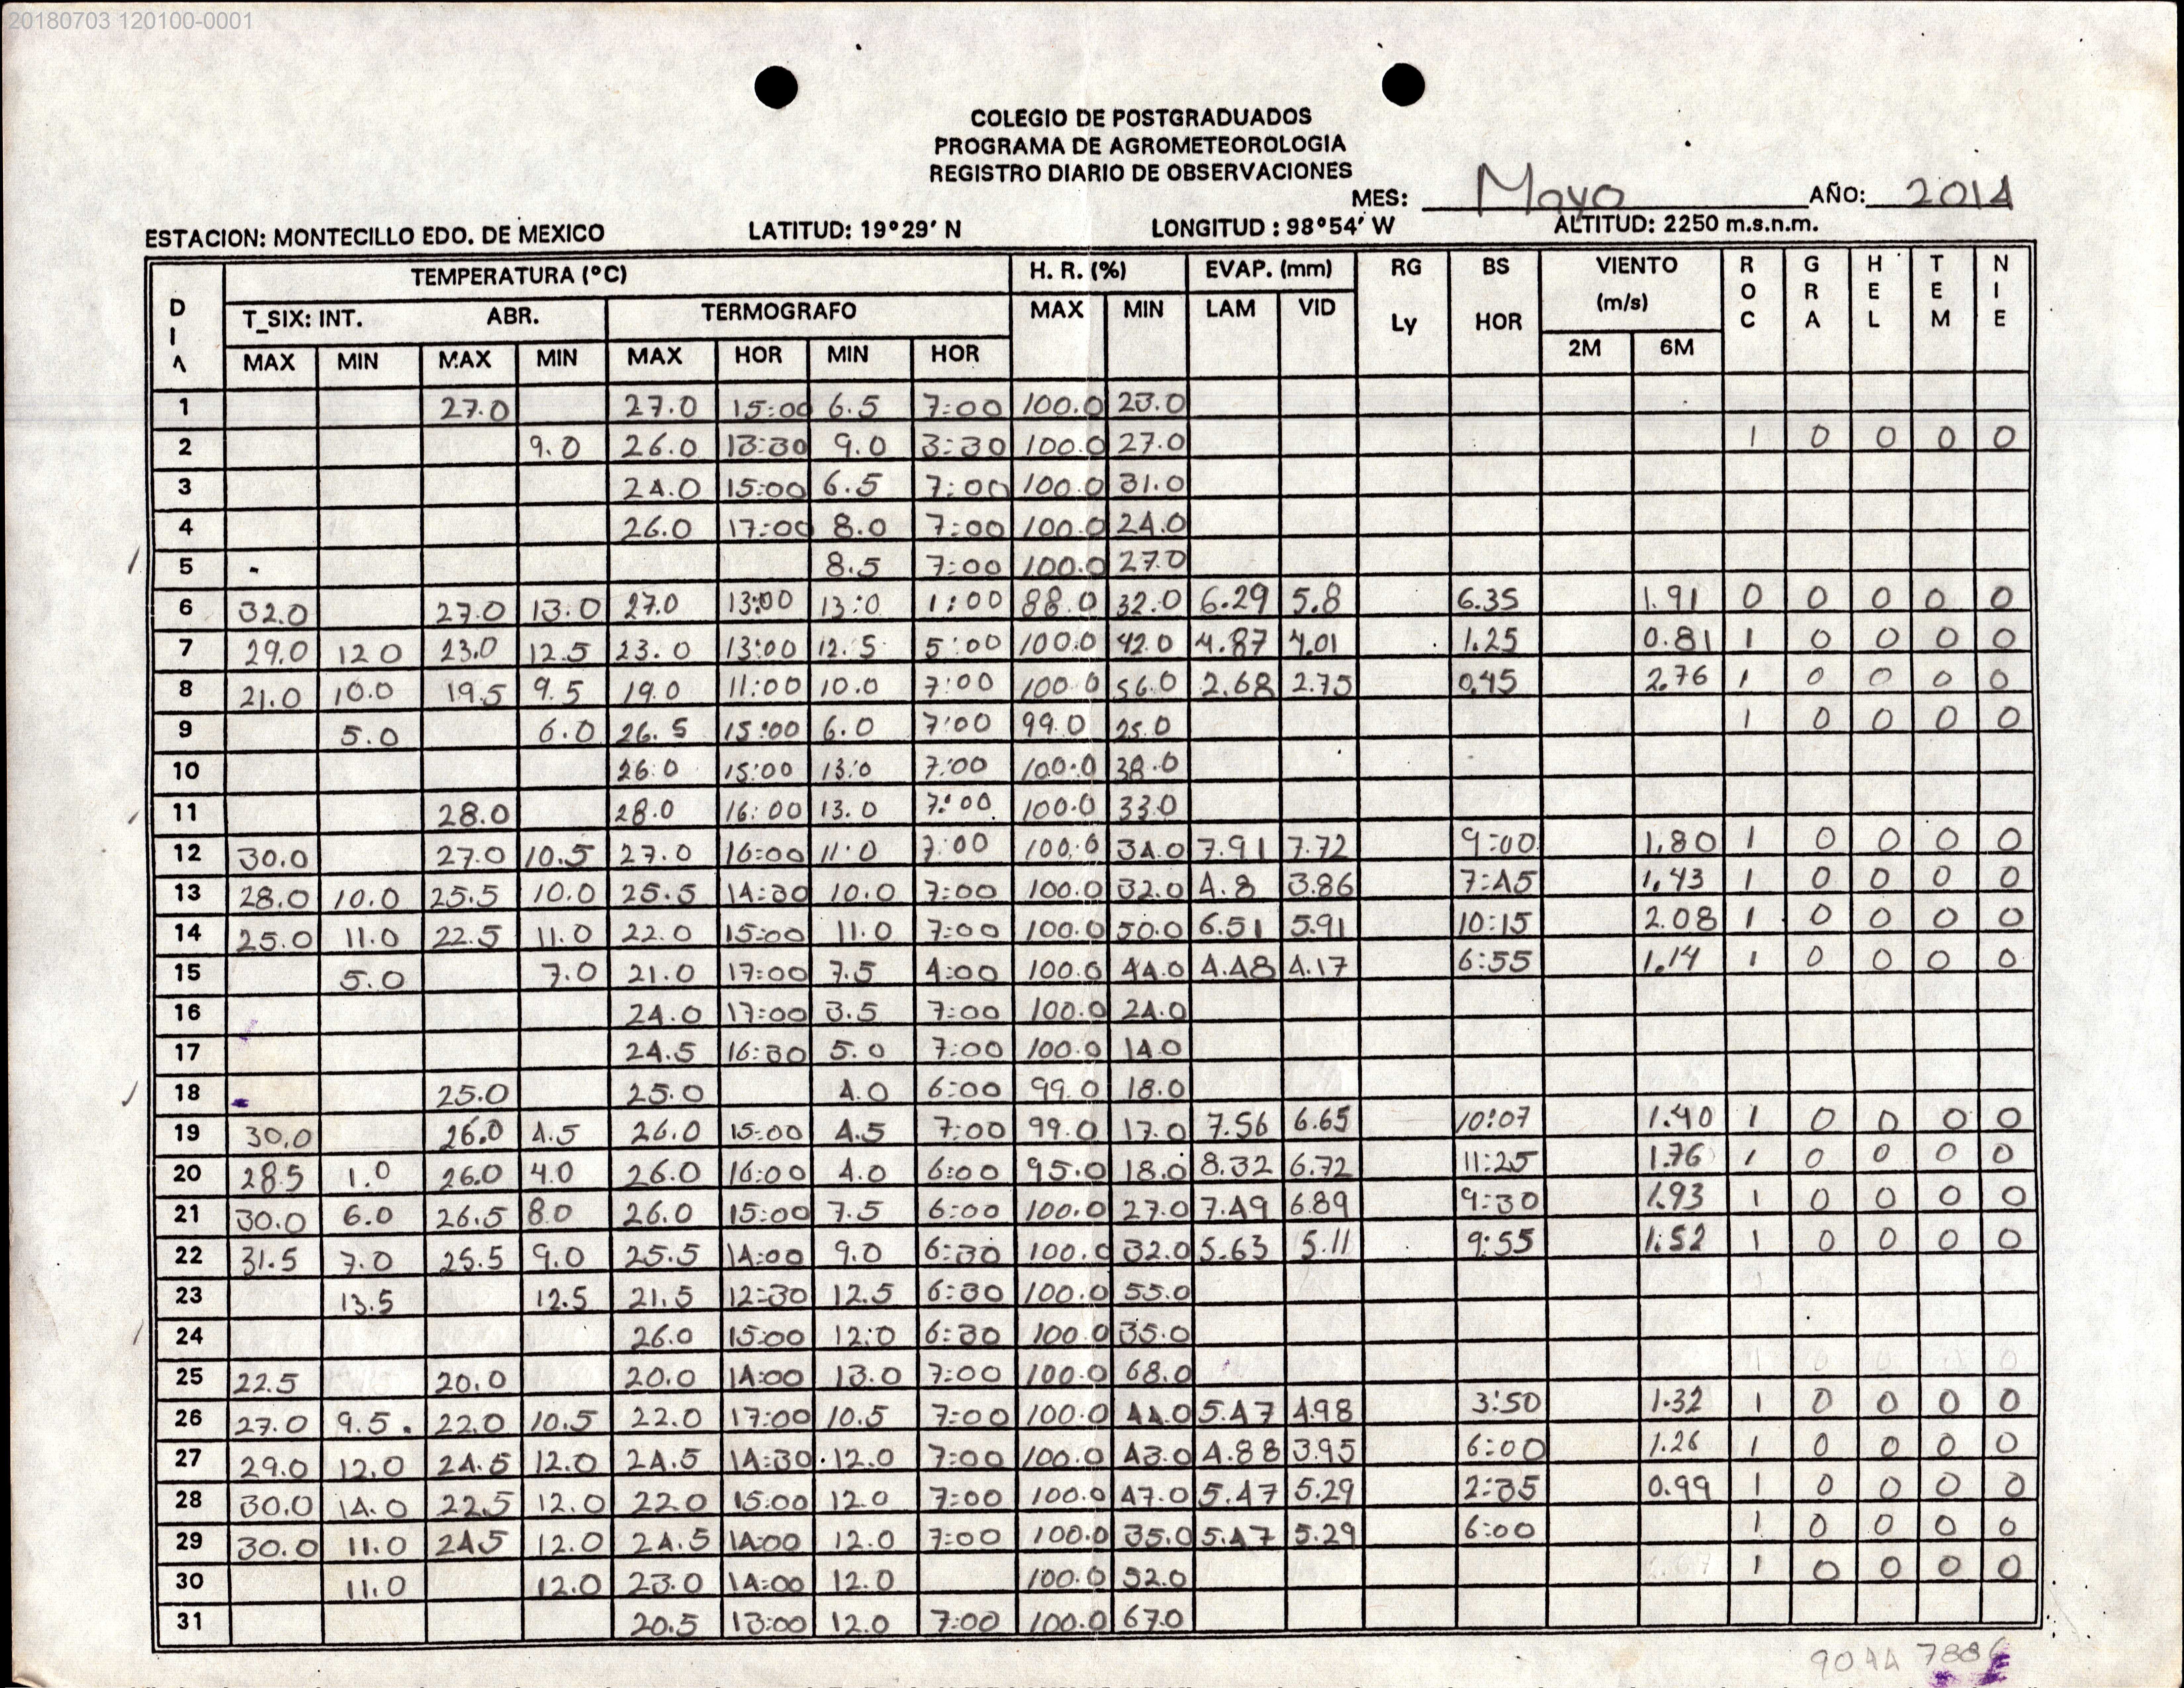 20180703 120100-0001
COLEGIO DE POSTGRADUADOS
PROGRAMA DE AGROMETEOROLOGIA
REGISTRO DIARIO DE OBSERVACIONES
MES: Mayo AÑO: 2014
ESTACION: MONTECILLO EDO. DE MEXICO LATITUD: 19°29' N LONGITUD : 98°54' W ALTITUD: 2250 m.s.n.m.
DIA TEMPERATURA (°C) H. R. (%) EVAP. (mm) RG Ly BS HOR VIENTO (m/s) ROC GRA HEL TEM NIE
T_SIX: INT. ABR. TERMOGRAFO MAX MIN LAM VID
MAX MIN MAX MIN MAX HOR MIN HOR 2M 6M
1 27.0 27.0 15:00 6.5 7:00 100.0 23.0
2 9.0 26.0 13:30 9.0 3:30 100.0 27.0 1 0 0 0 0
3 24.0 15:00 6.5 7:00 100.0 31.0
4 26.0 17:00 8.0 7:00 100.0 24.0
5 8.5 7:00 100.0 27.0
6 32.0 27.0 13.0 27.0 13:00 13:0 1:00 88.0 32.0 6.29 5.8 6.35 1.91 0 0 0 0 0
7 29.0 12 0 23.0 12.5 23.0 13:00 12.5 5:00 100.0 42.0 4.87 4.01 1.25 0.81 1 0 0 0 0
8 21.0 10.0 19.5 9.5 19.0 11:00 10.0 7:00 100.0 56.0 2.68 2.75 0.45 2.76 1 0 0 0 0
9 5.0 6.0 26.5 15:00 6.0 7:00 99.0 25.0 1 0 0 0 0
10 26.0 15:00 13.0 7:00 100.0 38.0
11 28.0 28.0 16:00 13.0 7:00 100.0 33.0
12 30.0 27.0 10.5 27.0 16:00 11.0 7:00 100.0 34.0 7.91 7.72 9:00 1.80 1 0 0 0 0
13 28.0 10.0 25.5 10.0 25.5 14:30 10.0 7:00 100.0 32.0 4.8 3.86 7:45 1.43 1 0 0 0 0
14 25.0 11.0 22.5 11.0 22.0 15:00 11.0 7:00 100.0 50.0 6.51 5.91 10:15 2.08 1 0 0 0 0
15 5.0 7.0 21.0 17:00 7.5 4:00 100.0 44.0 4.48 4.17 6:55 1.14 1 0 0 0 0
16 24.0 17:00 3.5 7:00 100.0 24.0
17 24.5 16:30 5.0 7:00 100.0 14.0
18 25.0 25.0 4.0 6:00 99.0 18.0
19 30.0 26.0 4.5 26.0 15:00 4.5 7:00 99.0 17.0 7.56 6.65 10:07 1.40 1 0 0 0 0
20 28.5 1.0 26.0 4.0 26.0 16:00 4.0 6:00 95.0 18.0 8.32 6.72 11:25 1.76 1 0 0 0 0
21 30.0 6.0 26.5 8.0 26.0 15:00 7.5 6:00 100.0 27.0 7.49 6.89 9:30 1.93 1 0 0 0 0
22 31.5 7.0 25.5 9.0 25.5 14:00 9.0 6:30 100.0 32.0 5.63 5.11 9:55 1.52 1 0 0 0 0
23 13.5 12.5 21.5 12:30 12.5 6:30 100.0 55.0
24 26.0 15:00 12.0 6:30 100.0 35.0
25 22.5 20.0 20.0 14:00 13.0 7:00 100.0 68.0 1 0 0 0 0
26 27.0 9.5 22.0 10.5 22.0 17:00 10.5 7:00 100.0 44.0 5.47 4.98 3:50 1.32 1 0 0 0 0
27 29.0 12.0 24.5 12.0 24.5 14:30 12.0 7:00 100.0 43.0 4.88 3.95 6:00 1.26 1 0 0 0 0
28 30.0 14.0 22.5 12.0 22.0 15:00 12.0 7:00 100.0 47.0 5.47 5.29 2:35 0.99 1 0 0 0 0
29 30.0 11.0 24.5 12.0 24.5 14:00 12.0 7:00 100.0 35.0 5.47 5.29 6:00 1 0 0 0 0
30 11.0 12.0 23.0 14:00 12.0 100.0 52.0 1 0 0 0 0
31 20.5 13:00 12.0 7:00 100.0 67.0
9044